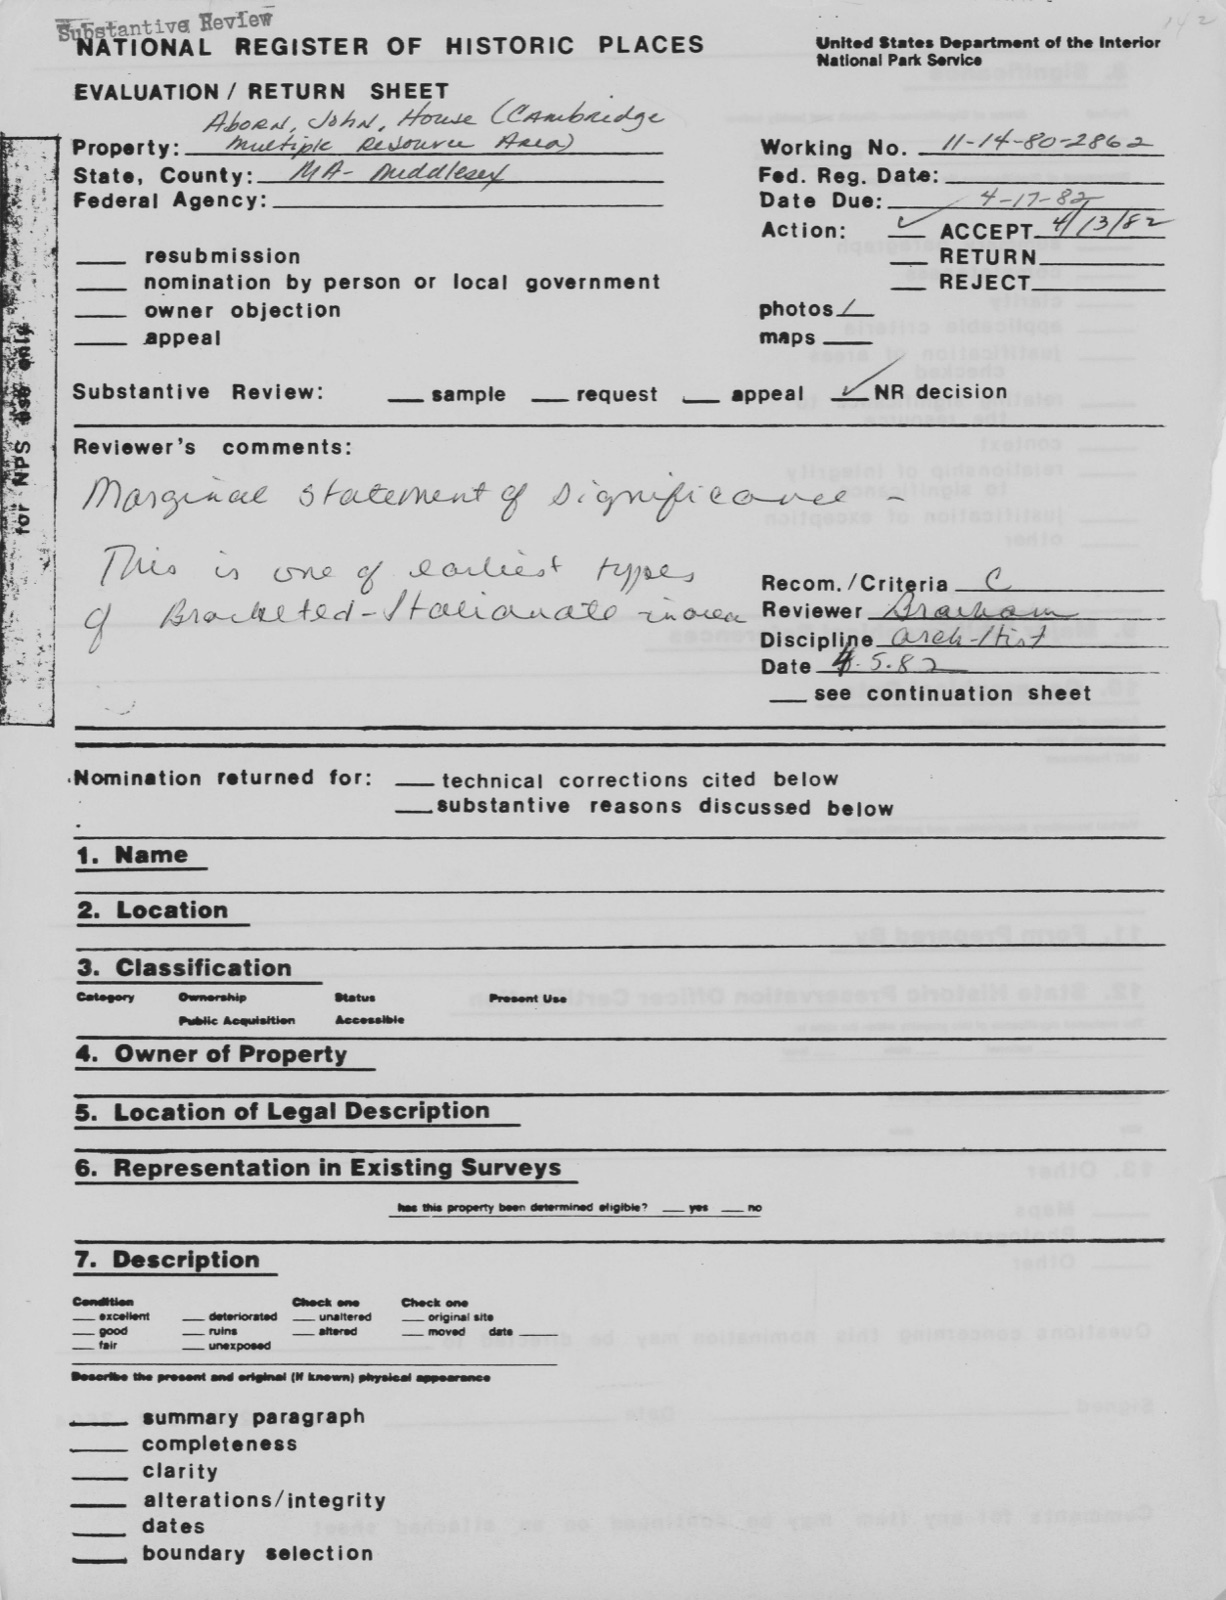 Substantive Review
NATIONAL REGISTER OF HISTORIC PLACES
United States Department of the Interior
National Park Service
EVALUATION / RETURN SHEET
Aborn, John, House (Cambridge
Property: Multiple Resource Area)
State, County: MA- Middlesex
Federal Agency:
Working No. 11-14-80-2862
Fed. Reg. Date:
Date Due: 4-17-82
Action: ✓ ACCEPT 4/13/82
RETURN
REJECT
resubmission
nomination by person or local government
owner objection
appeal
photos /
maps
for NPS use only
Substantive Review: sample request appeal ✓ NR decision
Reviewer's comments:
Marginal statement of significance -
This is one of earliest types
of Bracketed-Italianate in area
Recom./Criteria C
Reviewer
Discipline Arch-Hist
Date 4.5.82
see continuation sheet
Nomination returned for: technical corrections cited below
substantive reasons discussed below
1. Name
2. Location
3. Classification
Category Ownership Status Present Use
Public Acquisition Accessible
4. Owner of Property
5. Location of Legal Description
6. Representation in Existing Surveys
has this property been determined eligible? yes no
7. Description
Condition Check one Check one
excellent deteriorated unaltered original site
good ruins altered moved date
fair unexposed
Describe the present and original (if known) physical appearance
summary paragraph
completeness
clarity
alterations/integrity
dates
boundary selection